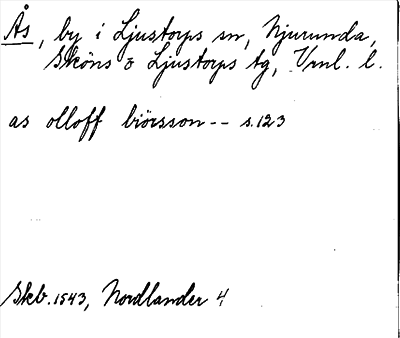 Ås, by i Ljustorps sn, Njurunda,
Sköns o Ljustorps tg, Vrnl. l.
as olloff biörsson -- s. 123
Skb. 1543, Nordlander 4